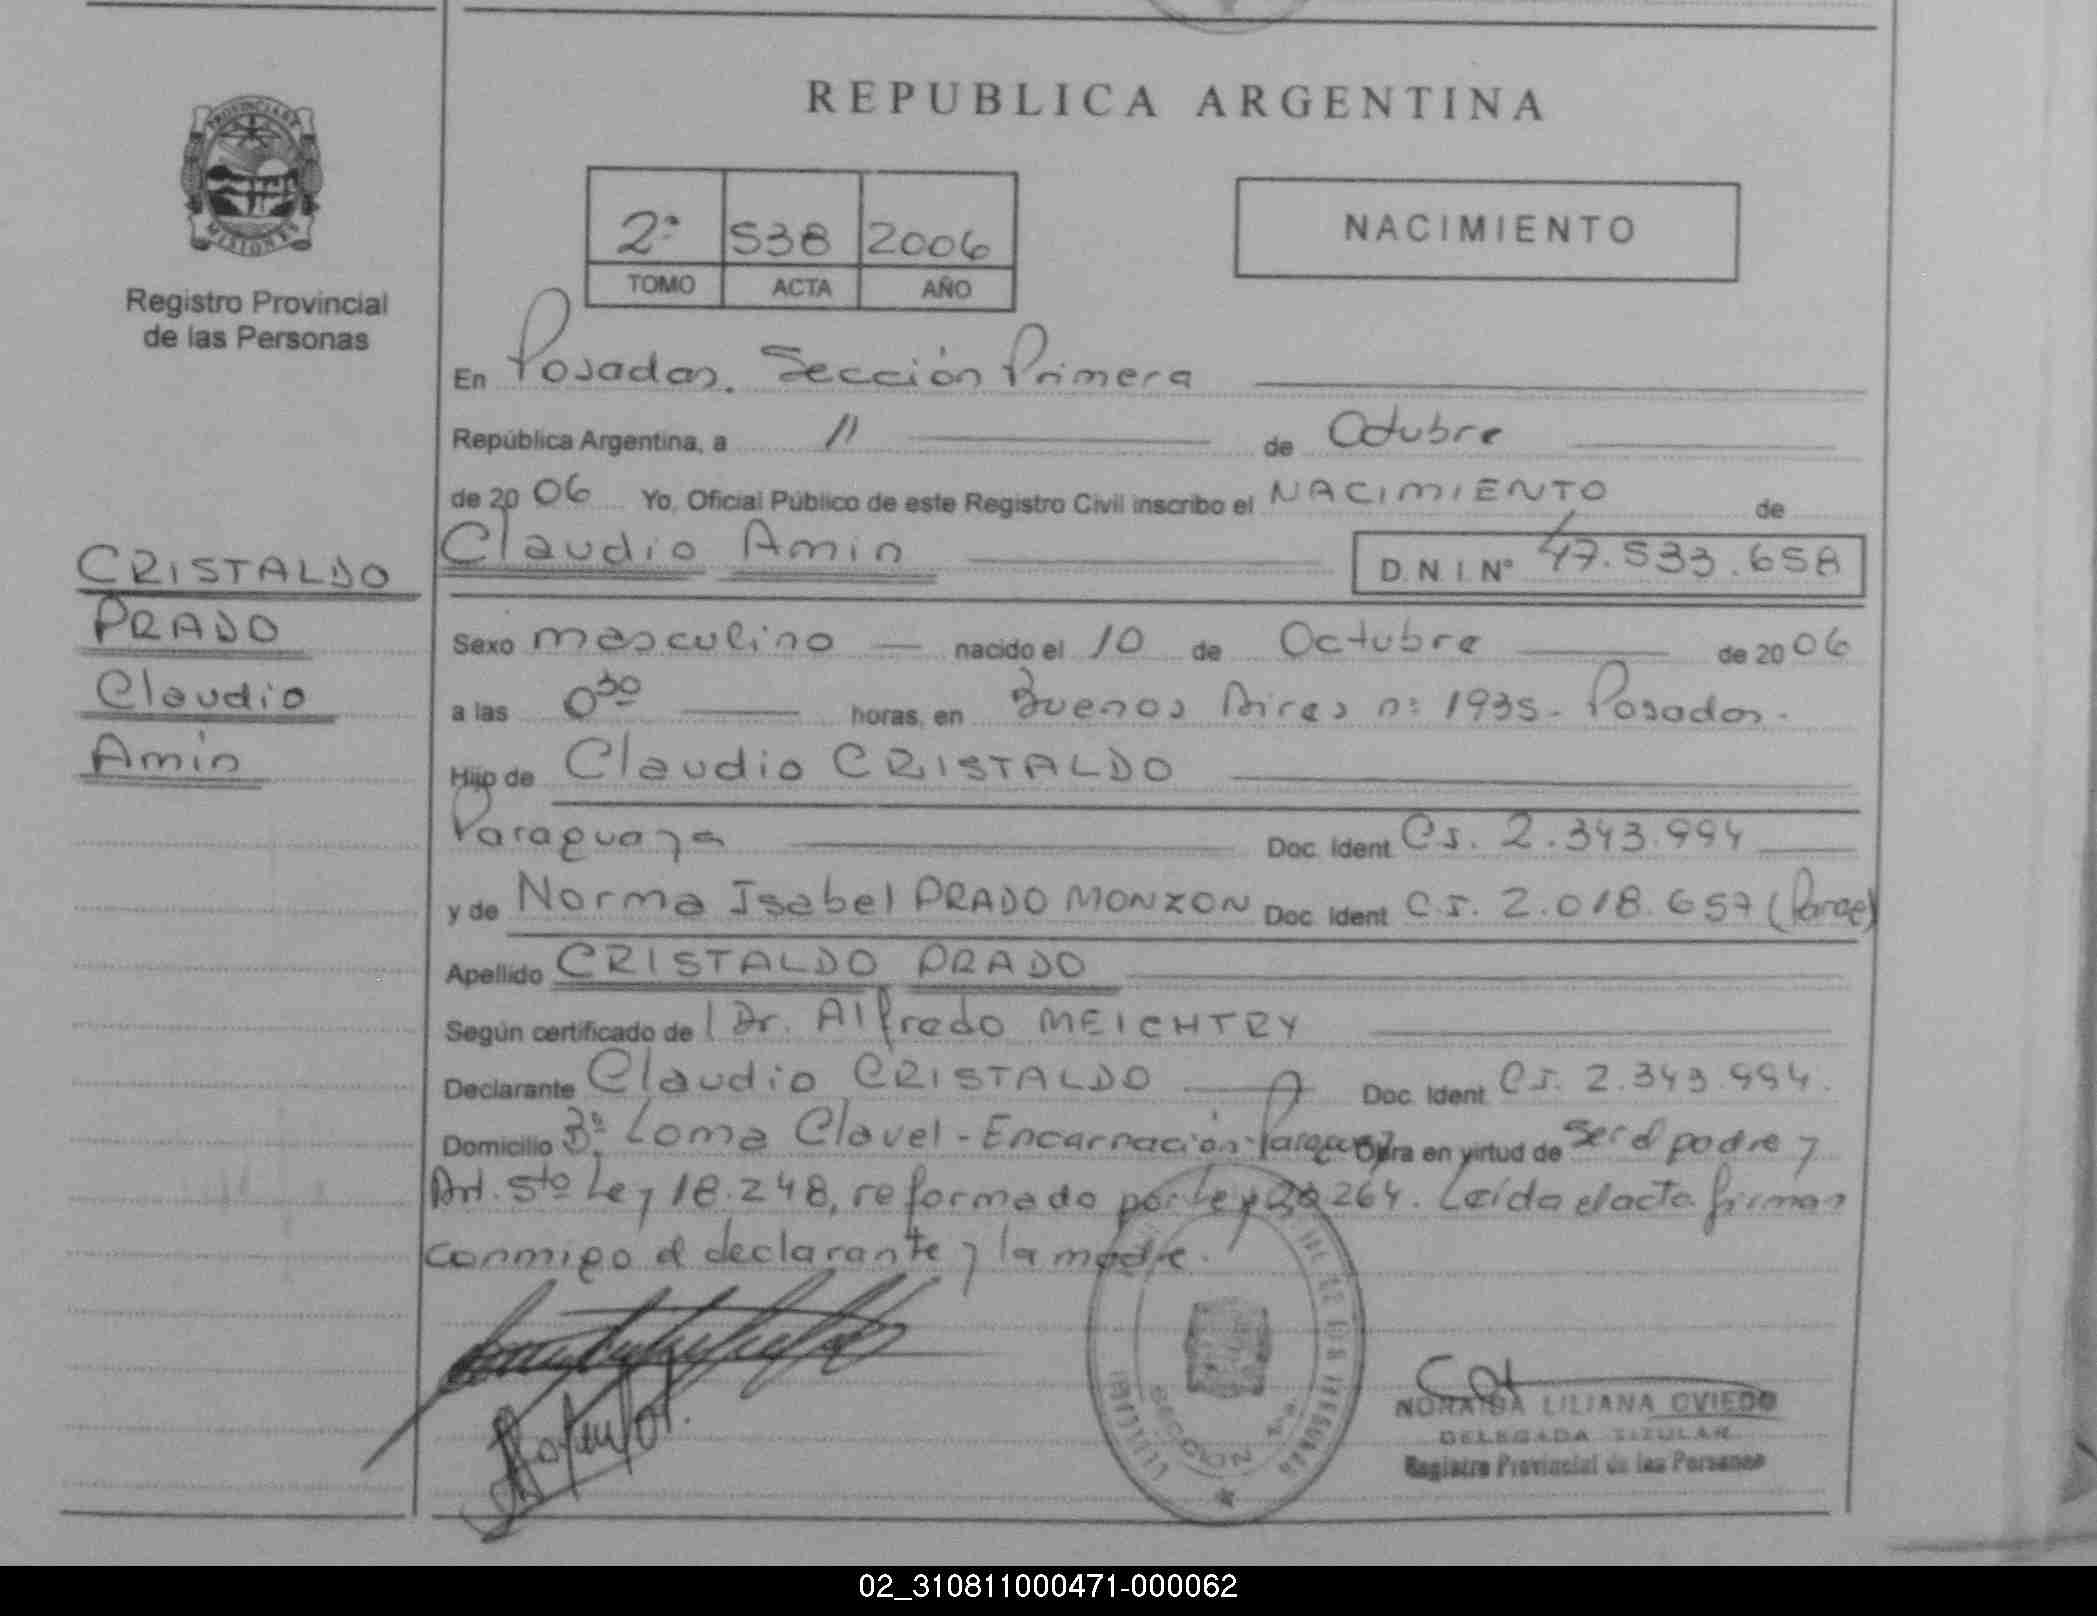 REPUBLICA ARGENTINA
PROVINCIA DE
MISIONES
Registro Provincial
de las Personas
2º 538 2006
TOMO ACTA AÑO
NACIMIENTO
En Posadas. Sección Primera
República Argentina, a 11 de Octubre
de 2006 Yo, Oficial Público de este Registro Civil inscribo el NACIMIENTO de
Claudio Amin D.N.I. Nº 47.533.658
CRISTALDO
PRADO
Claudio
Amin
Sexo masculino nacido el 10 de Octubre de 2006
a las 0 30 horas, en Buenos Aires nº 1935 - Posadas.
Hijo de Claudio CRISTALDO
Paraguaya Doc. Ident. C.I. 2.343.994
y de Norma Isabel PRADO MONZON Doc. Ident. C.I. 2.018.657 (Parag)
Apellido CRISTALDO PRADO
Según certificado de l Dr. Alfredo MEICHTRY
Declarante Claudio CRISTALDO Doc. Ident. C.I. 2.343.994.
Domicilio Bº Loma Clavel - Encarnación - Paraguay Obra en virtud de ser el padre y
Art. 5to Ley 18.248, reformado por Ley 20.264. Leída el acta firman
conmigo el declarante y la madre.
SECCION 1ra
NORAIDA LILIANA OVIEDO
DELEGADA TITULAR
Registro Provincial de las Personas
02_310811000471-000062